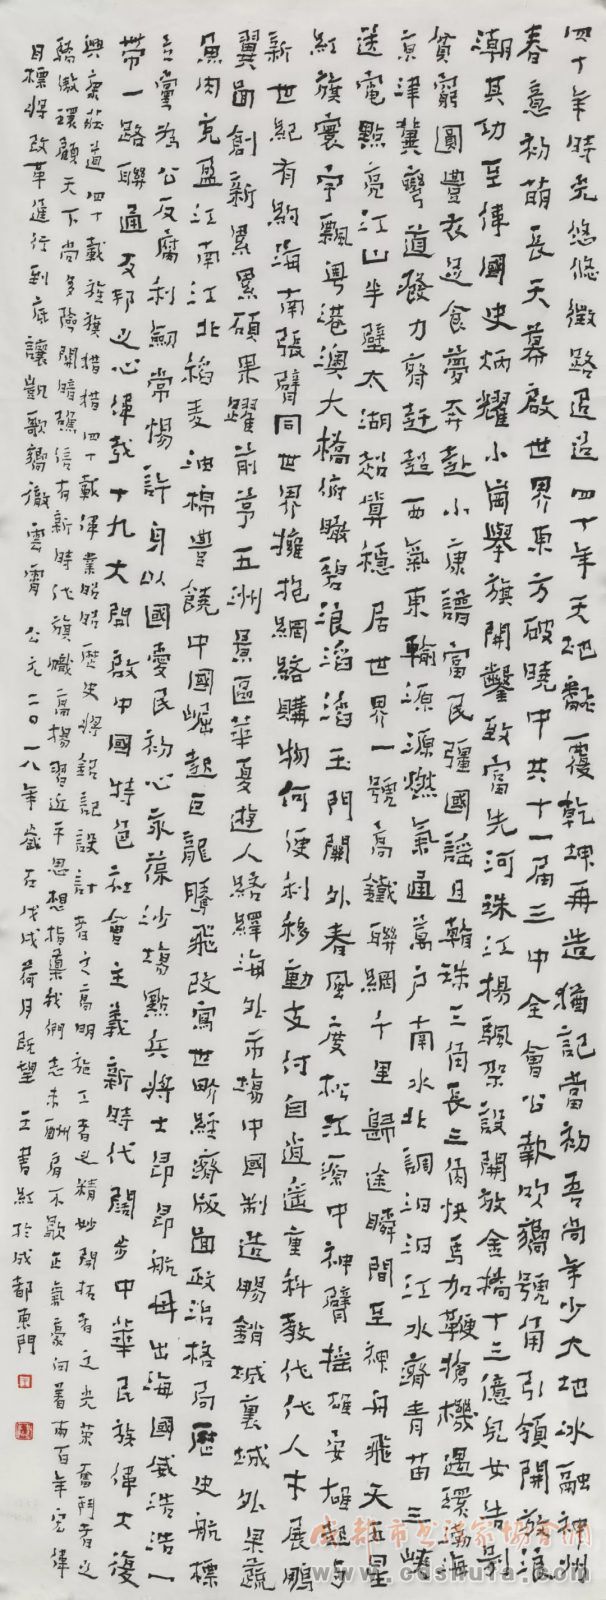 四十年時光悠悠徵路迢迢四十年天地翻覆乾坤再造猶記當初吾尚年少大地冰融神州
春意初萌長天幕啟世界東方破曉中共十一屆三中全會公報吹響號角引領開放浪
潮其功至偉國史炳耀小崗舉旗開鑿致富先河珠江揚颿架設開放金橋十三億兒女告別
貧窮圓豐衣足食夢奔赴小康譜富民彊國謠且看珠三角長三角快馬加鞭搶機遇環渤海
京津冀彎道發力齊趕超西氣東輸源源燃氣通萬户南水北調汩汩江水濟青苗三峽
送電點亮江山半壁太湖超算穩居世界一號高鐵聯網千里歸途瞬間至神舟飛天五星
紅旗寰宇飄粵港澳大橋俯瞰碧浪滔滔玉門關外春風度松江源中神臂摇雄安崛起与
新世紀有約海南張臂同世界擁抱網絡購物何便利移動支付自逍遥重科教代代人才展鵬
翼啚創新累累碩果躍前茅五洲景區華夏遊人絡繹海外市場中國制造暢銷城裏城外果蔬
魚肉充盈江南江北稻麦油棉豊饒中國崛起巨龍騰飛改寫世界經濟版啚政治格局歷史航標
立黨為公反腐利劍常惕許身以國愛民初心永葆沙場點兵將士昂昂航母出海國威浩浩一
帶一路聯通友邦之心偉哉十九大開啟中國特色社會主義新時代闊步中華民族偉大復
興康莊道四十載旌旗揩揩四十載偉業昭昭歷史將銘記設計者之高明施工者之精妙開拓者之光荣奮鬥者之
驕傲環顧天下尚多險關暗礁信有新時代旗幟高揚習近平思想指喿我們志未酬肩不歇正氣豪向着兩百年宏偉
目標將改革進行到底讓凱歌響徹雲霄 公元二〇一八年歲在戊戌荷月既望 王書紅於成都東門
成都市书法家协会网
www.cdshufa.com